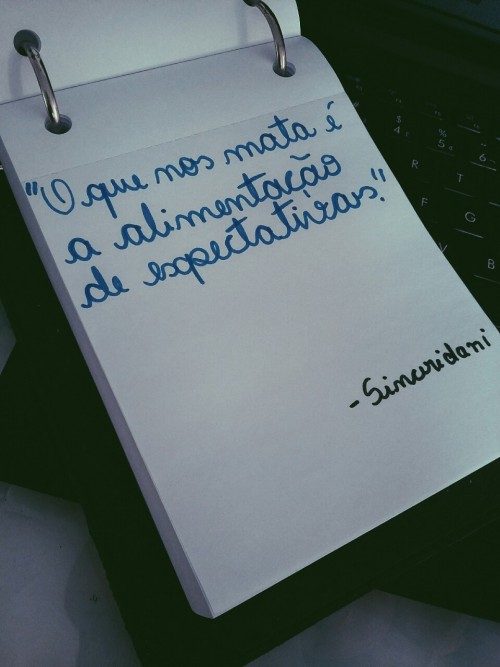 "O que nos mata é
a alimentação
de expectativas."
- Sinceridani
4
5
6
R
T
F
G
V
B